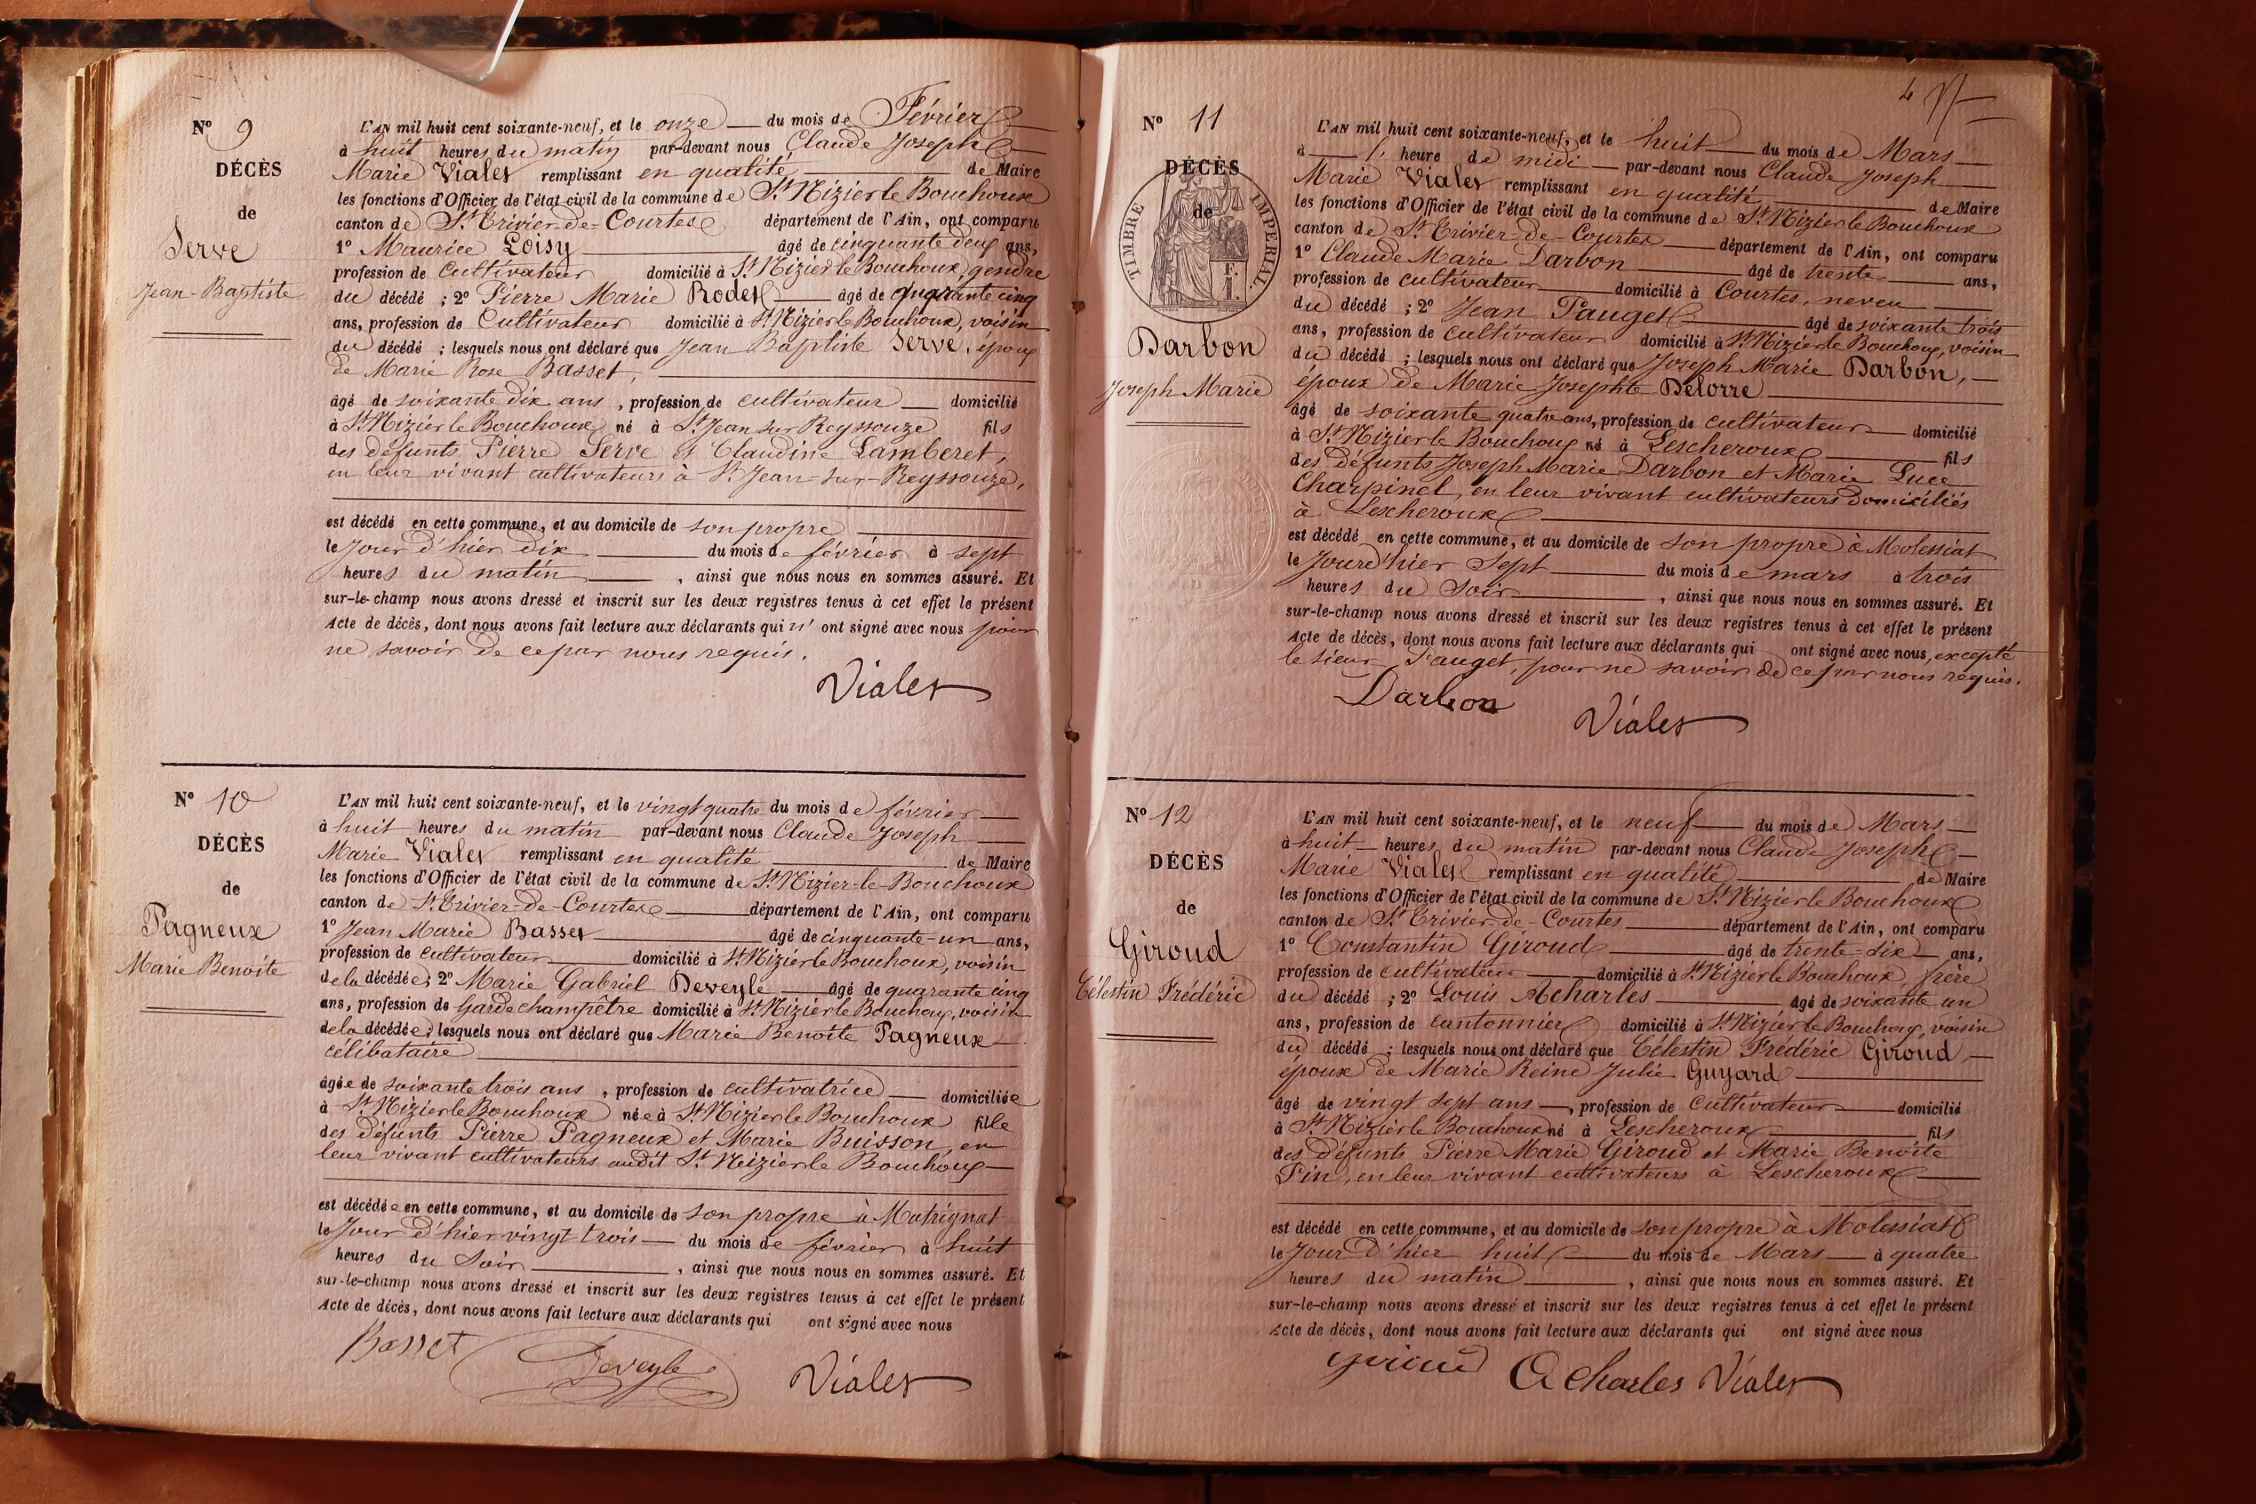 N° 9
DÉCÈS
de
Serve
Jean-Baptiste
L'AN mil huit cent soixante-neuf, et le onze du mois de Février
à huit heures du matin par-devant nous Claude Joseph
Marie Vialet remplissant en qualité de Maire
les fonctions d'Officier de l'état civil de la commune de St Nizier le Bouchoux
canton de St Trivier-de-Courtes département de l'Ain, ont comparu
1° Maurice Loisy âgé de cinquante deux ans,
profession de cultivateur domicilié à St Nizier le Bouchoux, gendre
du décédé ; 2° Pierre Marie Rodet âgé de quarante cinq
ans, profession de Cultivateur domicilié à St Nizier le Bouchoux, voisin
du décédé ; lesquels nous ont déclaré que Jean Baptiste Serve, époux
de Marie Rose Basset,
âgé de soixante dix ans, profession de cultivateur domicilié
à St Nizier le Bouchoux né à St Jean sur Reyssouze fils
des défunts Pierre Serve et Claudine Lamberet,
en leur vivant cultivateurs à St Jean-sur-Reyssouze,
est décédé en cette commune, et au domicile de son propre
le Jour d'hier dix du mois de février à sept
heures du matin, ainsi que nous nous en sommes assuré. Et
sur-le-champ nous avons dressé et inscrit sur les deux registres tenus à cet effet le présent
Acte de décès, dont nous avons fait lecture aux déclarants qui n'ont signé avec nous pour
ne savoir de ce par nous requis.
Vialet
N° 10
DÉCÈS
de
Pagneux
Marie Benoite
L'AN mil huit cent soixante-neuf, et le vingt quatre du mois de février
à huit heures du matin par-devant nous Claude Joseph
Marie Vialet remplissant en qualité de Maire
les fonctions d'Officier de l'état civil de la commune de St Nizier-le-Bouchoux
canton de St Trivier-de-Courtes département de l'Ain, ont comparu
1° Jean Marie Basset âgé de cinquante-un ans,
profession de cultivateur domicilié à St Nizier le Bouchoux, voisin
de la décédée, 2° Marie Gabriel Deveyle âgé de quarante cinq
ans, profession de Garde champêtre domicilié à St Nizier le Bouchoux, voisin
de la décédée ; lesquels nous ont déclaré que Marie Benoite Pagneux
célibataire
âgée de soixante trois ans, profession de cultivatrice domiciliée
à St Nizier le Bouchoux née à St Nizier le Bouchoux fille
des défunts Pierre Pagneux et Marie Buisson, en
leur vivant cultivateurs audit St Nizier le Bouchoux
est décédée en cette commune, et au domicile de son propre à Matrignat
le Jour d'hier vingt trois du mois de février à huit
heures du soir, ainsi que nous nous en sommes assuré. Et
sur-le-champ nous avons dressé et inscrit sur les deux registres tenus à cet effet le présent
Acte de décès, dont nous avons fait lecture aux déclarants qui ont signé avec nous
Basset Deveyle Vialet
4
N° 11
DÉCÈS
de
TIMBRE IMPERIAL
F.
1.
Darbon
Joseph Marie
L'AN mil huit cent soixante-neuf, et le huit du mois de Mars
à l' heure de midi par-devant nous Claude Joseph
Marie Vialet remplissant en qualité de Maire
les fonctions d'Officier de l'état civil de la commune de St Nizier le Bouchoux
canton de St Trivier-de-Courtes département de l'Ain, ont comparu
1° Claude Marie Darbon âgé de trente ans,
profession de cultivateur domicilié à Courtes, neveu
du décédé ; 2° Jean Pauget âgé de soixante trois
ans, profession de cultivateur domicilié à St Nizier le Bouchoux, voisin
du décédé ; lesquels nous ont déclaré que Joseph Marie Darbon,
époux de Marie Josephte Delorre
âgé de soixante quatre ans, profession de cultivateur domicilié
à St Nizier le Bouchoux né à Lescheroux fils
des défunts Joseph Marie Darbon et Marie Luce
Charpinel, en leur vivant cultivateurs domiciliés
à Lescheroux
est décédé en cette commune, et au domicile de son propre à Molessiat
le Jour d'hier Sept du mois de mars à trois
heures du Soir, ainsi que nous nous en sommes assuré. Et
sur-le-champ nous avons dressé et inscrit sur les deux registres tenus à cet effet le présent
Acte de décès, dont nous avons fait lecture aux déclarants qui ont signé avec nous, excepté
le sieur Pauget, pour ne savoir de ce par nous requis.
Darbon
Vialet
N° 12
DÉCÈS
de
Giroud
Célestin Frédéric
L'AN mil huit cent soixante-neuf, et le neuf du mois de Mars
à huit heures du matin par-devant nous Claude Joseph
Marie Vialet remplissant en qualité de Maire
les fonctions d'Officier de l'état civil de la commune de St Nizier le Bouchoux
canton de St Trivier-de-Courtes département de l'Ain, ont comparu
1° Constantin Giroud âgé de trente-dix ans,
profession de cultivateur domicilié à St Nizier le Bouchoux, frère
du décédé ; 2° Louis Acharles âgé de soixante un
ans, profession de cantonnier domicilié à St Nizier le Bouchoux, voisin
du décédé ; lesquels nous ont déclaré que Célestin Frédéric Giroud
époux de Marie Reine Julie Guyard
âgé de vingt sept ans, profession de cultivateur domicilié
à St Nizier le Bouchoux né à Lescheroux fils
des défunts Pierre Marie Giroud et Marie Benoite
Pin, en leur vivant cultivateurs à Lescheroux
est décédé en cette commune, et au domicile de son propre à Molessiat
le Jour d'hier huit du mois de Mars à quatre
heures du matin, ainsi que nous nous en sommes assuré. Et
sur-le-champ nous avons dressé et inscrit sur les deux registres tenus à cet effet le présent
Acte de décès, dont nous avons fait lecture aux déclarants qui ont signé avec nous
Acharles Vialet